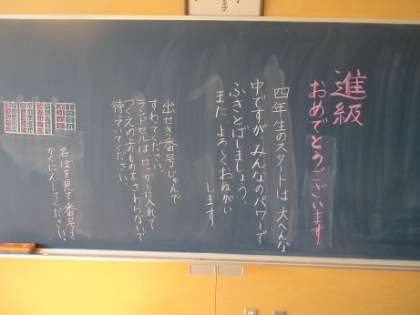 進級
おめでとうございます
四年生のスタートは、大へんな
中ですが、みんなのパワーで
ふきとばしましょう。
また、よろしくおねがい
します
出せき番号じゅんで
すわってください。
ランドセルはロッカーに入れて
つくえの上のものはさわらないで
待っていてください。
名ぼを見て番号を
かくにんしてください。